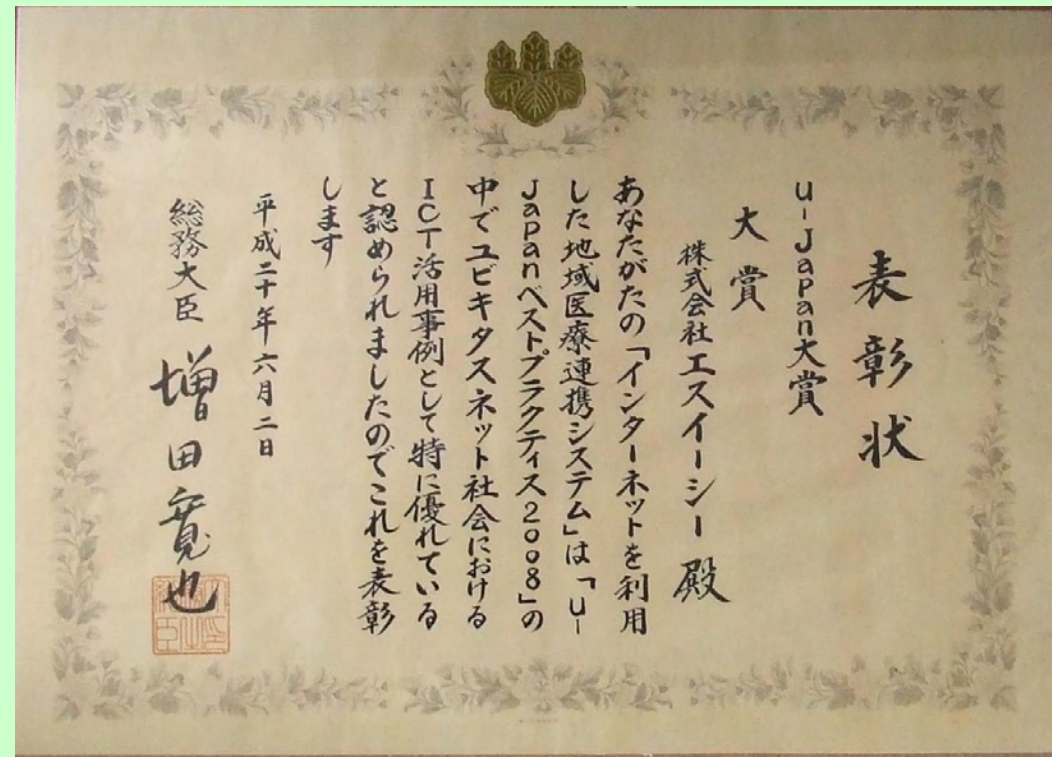 表彰状
u-Japan大賞
大賞
株式会社エスイーシー 殿
あなたがたの「インターネットを利用
した地域医療連携システム」は「u-
Japanベストプラクティス2008」の
中でユビキタスネット社会における
ICT活用事例として特に優れている
と認められましたのでこれを表彰
します
平成二十年六月二日
総務大臣 増田寛也